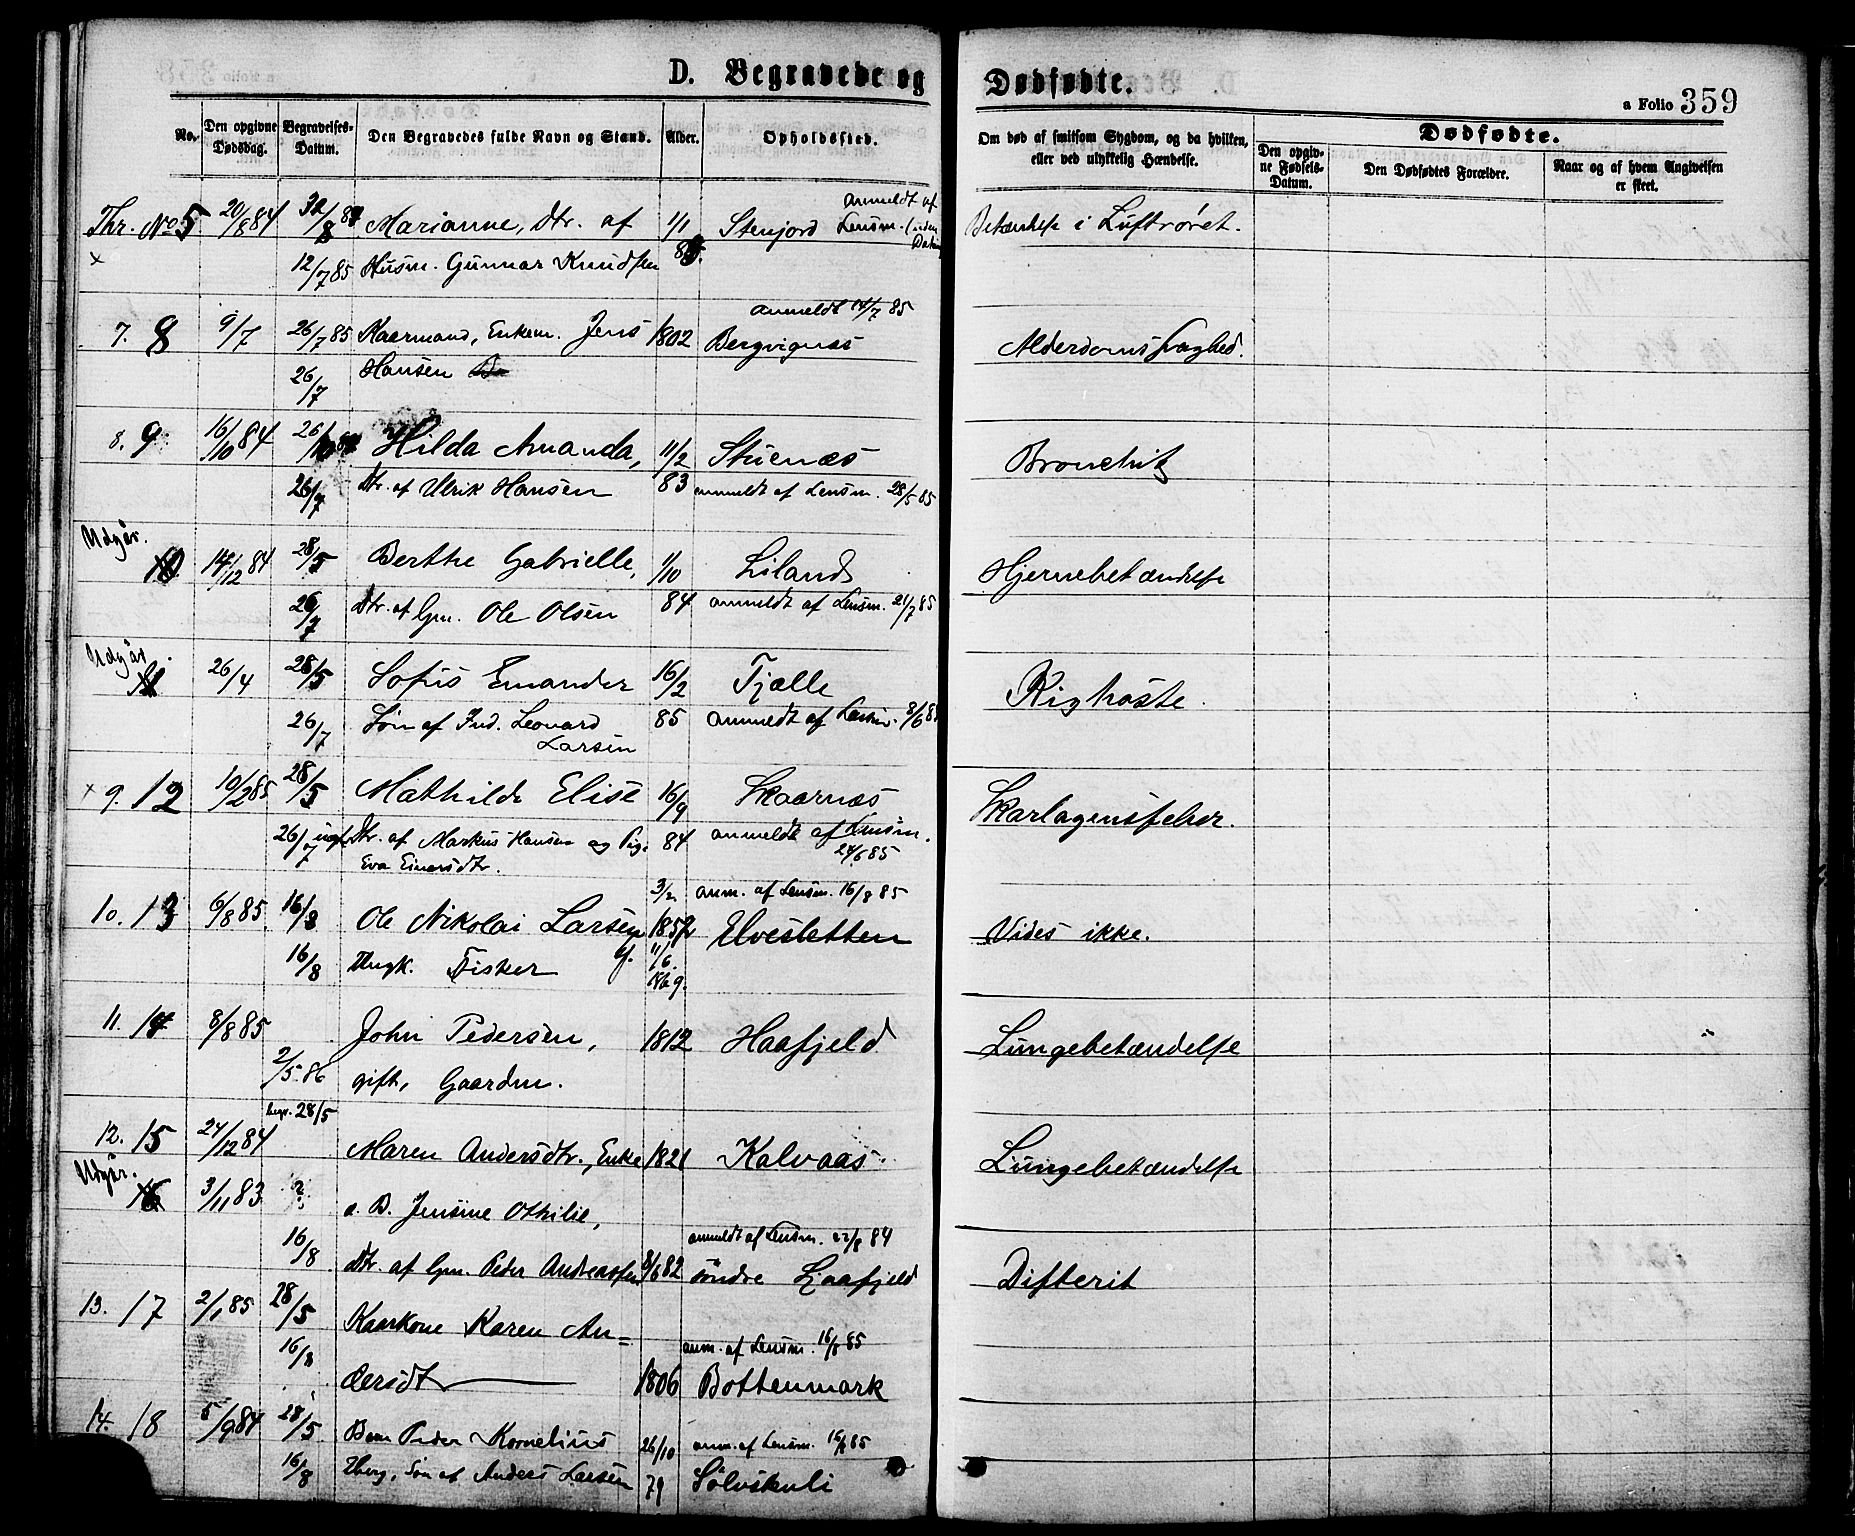 D. Begravede og Dødfødte.
a Folio 359
No. Den opgivne Dødsdag. Begravelses-Datum. Den Begravedes fulde Navn og Stand. Alder. Opholdssted. Om død af smitsom Sygdom, og da hvilken, eller ved ulykkelig Hændelse. Dødfødte.
Den opgivne Fødsels-Datum. Den Dødfødtes Forældre. Naar og af hvem Angivelsen er skeet.
anmeldt af
Thr. No 5 20/8 84 Marianne, Dtr. af 1/1 Stenjord Lensm. i Luftrøret.
x 12/7 85 Husm. Gunnar Knudsen
anmeldt 14/7 85
7. 8 9/7 26/7 85 Kaarmand, Enkem. Jens 1802 Bergvignæs Alderdomssvaghed.
26/7 Hansen
8. 9. 16/10 84 Hilda Amanda, 11/2 Stuenæs Bronchit
26/7 Dtr. af Ulrik Hansen 83 anmeldt af Lensm. 28/5 85
Udgår.
10. 14/12 84 28/5 Berthe Gabrielle, 1/10 Liland Hjernebetændelse
26/7 Dtr. af Gm. Ole Olsen 84 anmeldt af Lensm. 21/7 85
Udgår.
11 26/4 28/5 Sofus Emander 16/2 Fjælle Kighoste.
26/7 Søn af Ind. Leonard 85 anmeldt af Lensm. 8/6 85
Larsen
x 9. 12 10/2 85 28/5 Mathilde Elise 16/9 Skaarnæs Skarlagensfeber.
26/7 Dtr. af Markus Hansen og Pig. 84 anmeldt af Lensm.
Eva Einarsdtr. 24/6 85
3/2 anm. af Lensm. 16/8 85
10. 13 6/8 85. 16/8 Ole Nikolai Larsen 1852 Elvesletten Vides ikke.
16/8 Ungk. Fisker 11/6
11. 14 8/8 85 John Pedersen, 1812 Haafjeld Lungebetændelse
2/5 86 gift, Gaardm.
begr. 28/5
12. 15 24/12 84 Maren Andersdtr., Enke 1821 Kalvaas Lungebetændelse
Udgår.
16 3/11 83 ? Jensine Othilie,
anmeldt af Lensm. 22/8 84
16/8 Dtr. af Gm. Peder Andreassen 8/6 82 söndre Ljaafjeld Difterit
13. 17 2/1 85 28/5 Kaarkone Karen An=
16/8 anm. af Lensm. 16/8 85
dersdt 1806 Bottenmark
14. 18 5/9 84 28/5 Barn Peder Kornelius 26/10 anm. af Lensm. 16/8 85
16/8 Eberg, Søn af Anders Larsen 79 Sölvskauli